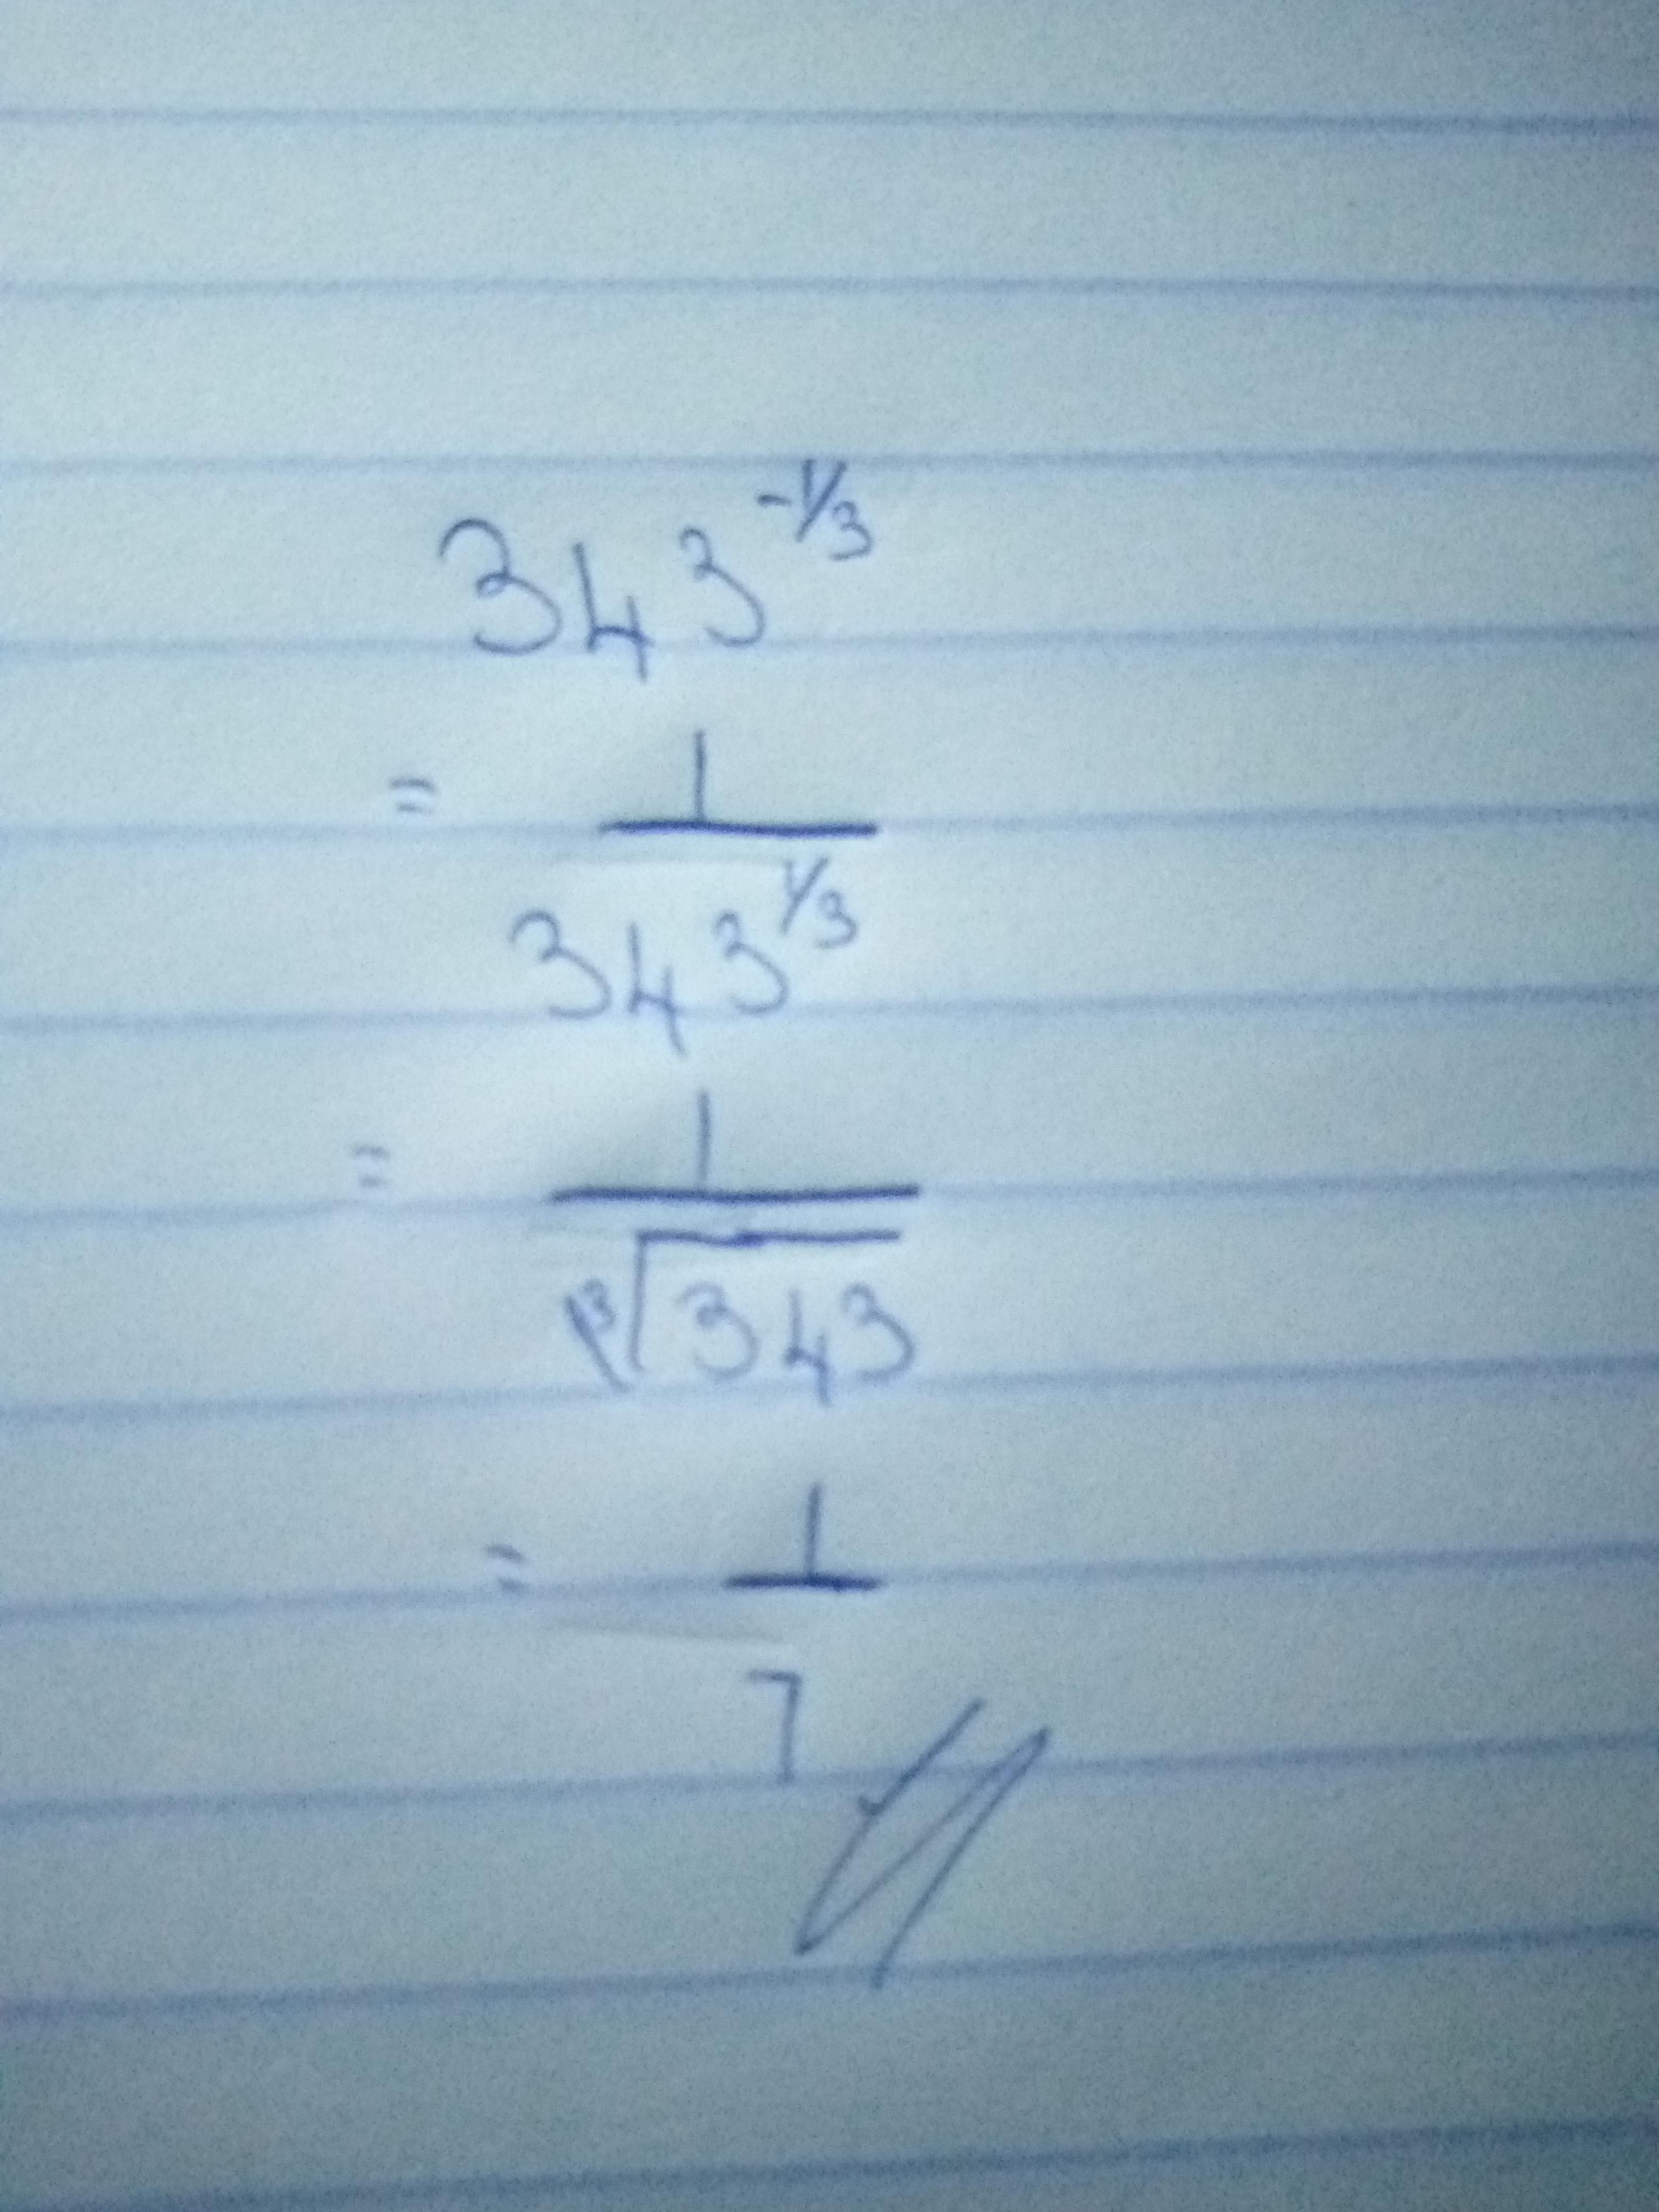 343^{-1/3}
= \frac{1}{343^{1/3}}
= \frac{1}{\sqrt[3]{343}}
= \frac{1}{7}